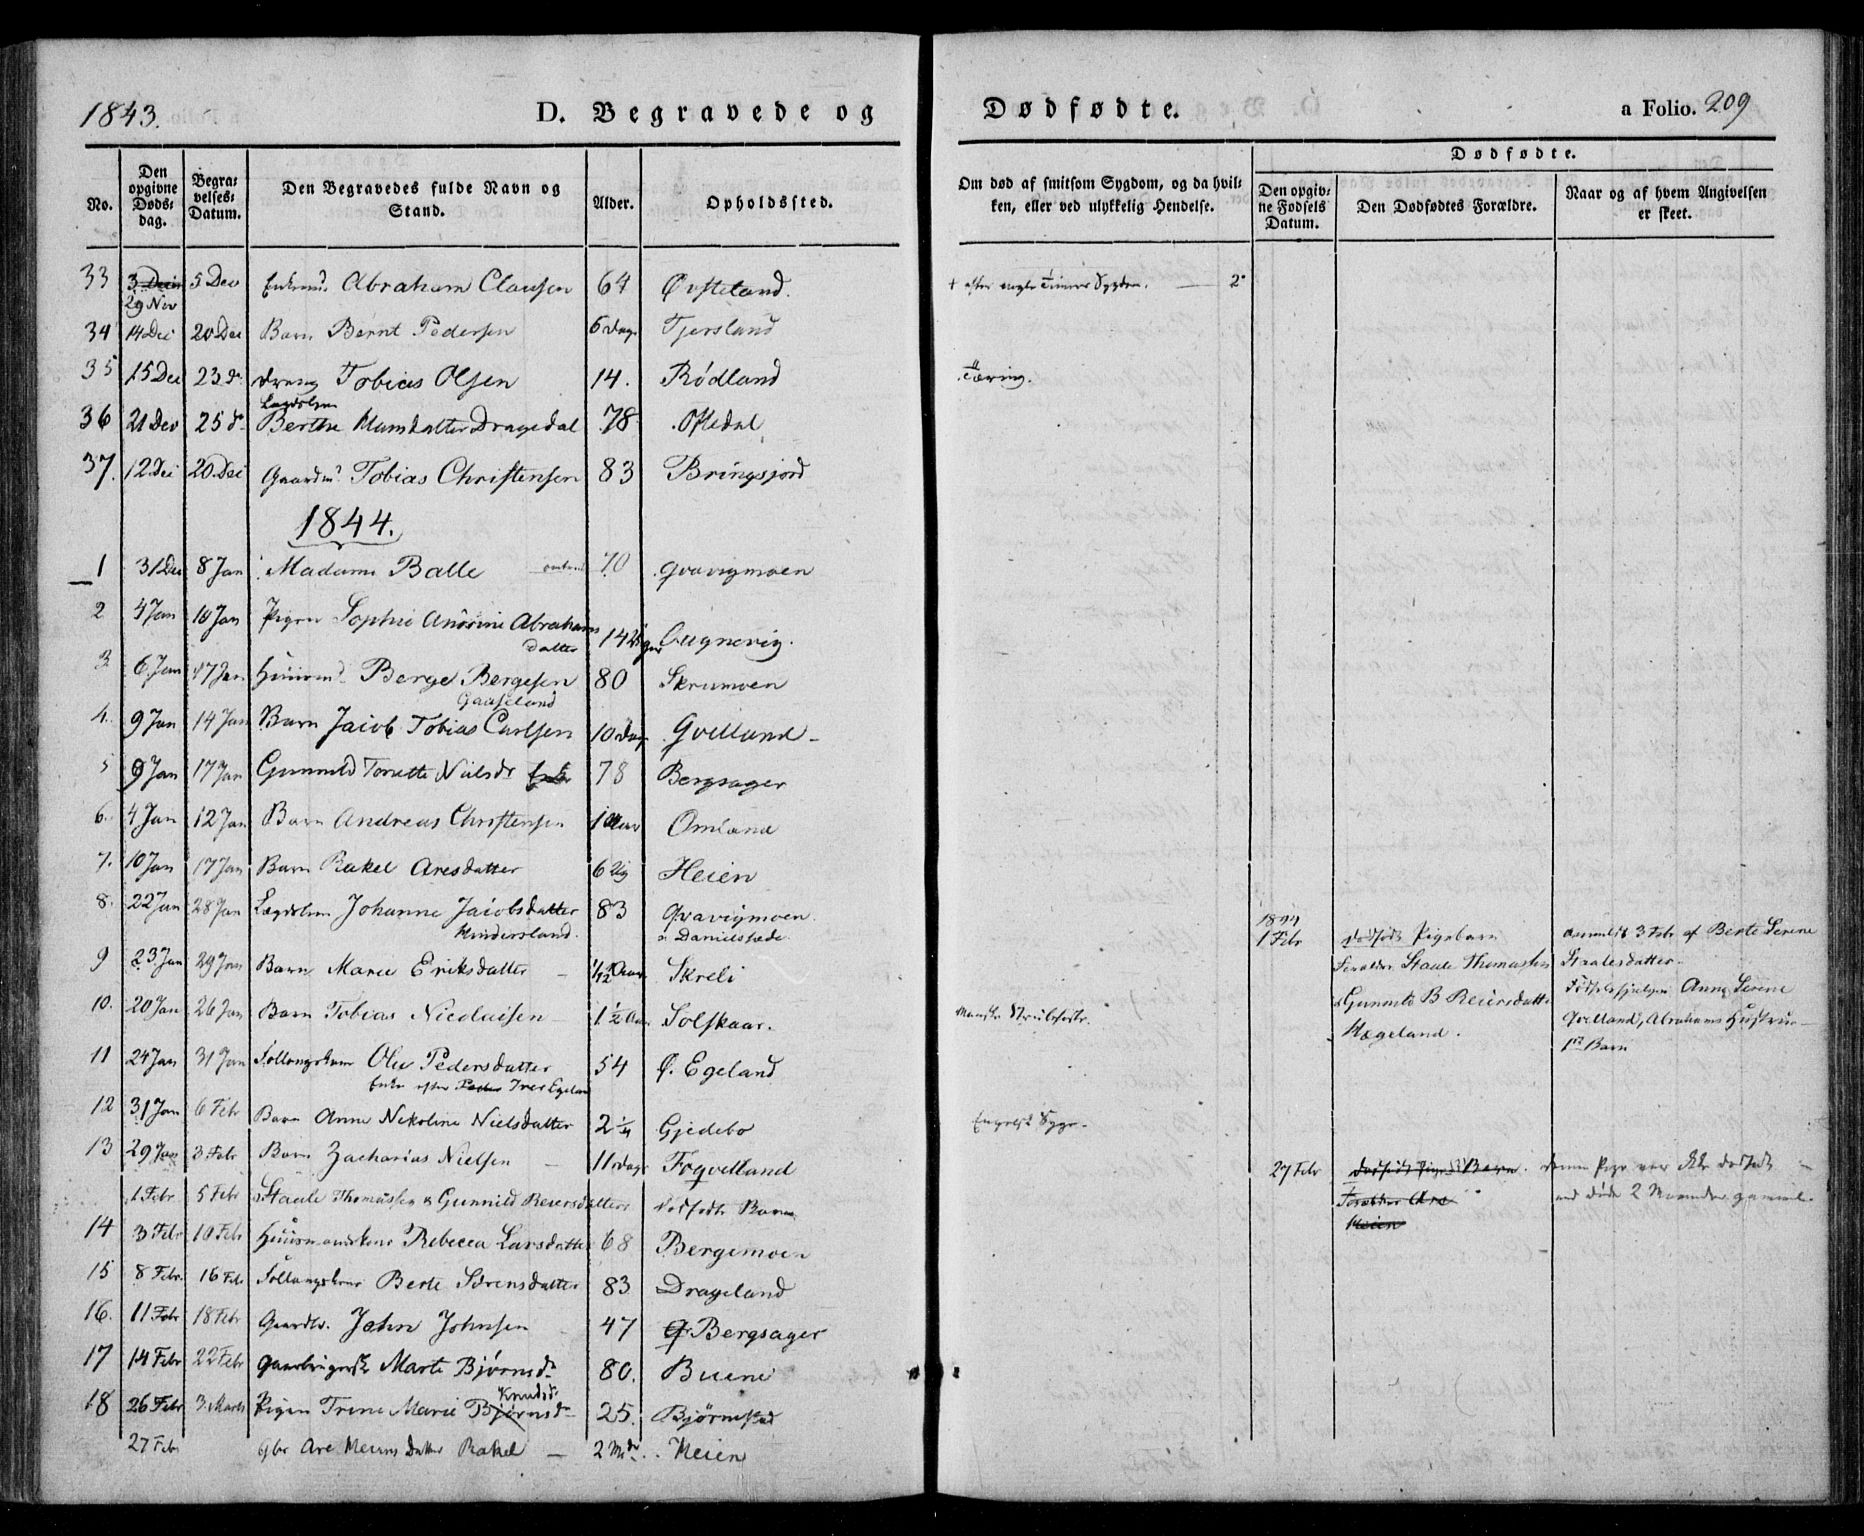 1843.
D. Begravede og Dødfødte.
a Folio. 209
No. Den opgivne Døds-dag. Begra-velses-Datum. Den Begravedes fulde Navn og Stand. Alder. Opholdssted.
Om død af smitsom Sygdom, og da hvil-ken, eller ved ulykkelig Hendelse.
Dødfødte.
Den opgiv-ne Fødsels Datum. Den Dødfødtes Forældre. Naar og af hvem Angivelsen er skeet.
33 3 Dec 5 Dec Abraham Clausen 64 Øvfteland. + efter 2
29 Nov
34 14 Dec 20 Dec Barn Bernt Pedersen 6 Dage Tjersland
35 15 Dec 23 d Dreng Tobias Olsen 14. Rødland Tæring.
Lægdslem
36 21 Dec 25 d Berthe Dragedal 78 Oftedal
37. 12 Dec 20 Dec Gaardm. Tobias Christensen 83 Bringsjord
1844.
1 31 Dec 8 Jan Madame Balle 70 Qvavigmoen
2 4 Jan 10 Jan Pigen Sophie Andrine Abrahams
datter 14 Uger Augnevig.
3 6 Jan 17 Jan Huusmd Berge Bergesen 80 Skrumoen
Gaaseland
4. 9 Jan 14 Jan Barn Jacob Tobias Carlsen 10 Dage Qvelland
5 9 Jan 17 Jan Gunnild Torette Nielsdr Enke 78 Bergsager
6. 4 Jan 12 Jan Barn Andreas Christensen 1 Aar Omland
7. 10 Jan 17 Jan Barn Rakel Aresdatter 6 Ug Heien
8. 22 Jan 28 Jan Lægdslem Johanne Jacobsdatter 83 Qvavigmoen.
Hindersland. Danielsstæde.
1844
1 Febr dødfødt Pigebarn anmeldt 3 Febr af Berte Serine
9 23 Jan 29 Jan Barn Marie Eriksdatter 1/12 Aar Skreli
Forældre Staale Thomassen Staalesdatter.
10. 20 Jan 26 Jan Barn Tobias Nicolaisen 1 1/2 Aar Solskaar. Strubehoste.
& Gunnild B Reiersdatter Fødselshjelpen Anne Serine
Hægeland. Qvelland, Abrahams Hustrue
1ste Barn
11 24 Jan 31 Jan Follaugskone Ole Pedersdatter 54 Ø. Egeland
Enke efter Peder Iver Egeland
12 31 Jan 6 Febr Barn Anne Nikoline Nielsdatter 2 1/4 Gjedebo Engelsk Syge.
13 29 Jan 3 Febr Barn Zacharias Nielsen 11 Dage Frqvelland
27 Febr dødfødt Pige Barn. denne Pige var ikke dødfødt
Forældre Are men døde 2 Maaneder gammel.
Heien
1 Febr 5 Febr Staale Thomassen & Gunnild Reiersdatters dødfødte Barn
14 3 Febr 10 Febr Huusmandskone Rebecca Larsdatter 68 Bergemoen
15 8 Febr. 16 Feb Follaugskone Berte Sørensdatter 83 Drageland
16. 11 Febr 18 Febr Gaardbr. John Johnsen 47 Bergsager
17 14 Febr 22 Febr Marte Bjørnsd 80. Buene
Knudsd
18 26 Febr 3 Marts Pigen Trine Marie Bjørnsd 25. Bjørnstad
27 Febr Are Heiens Datter Rakel 2 Mdr. Heien